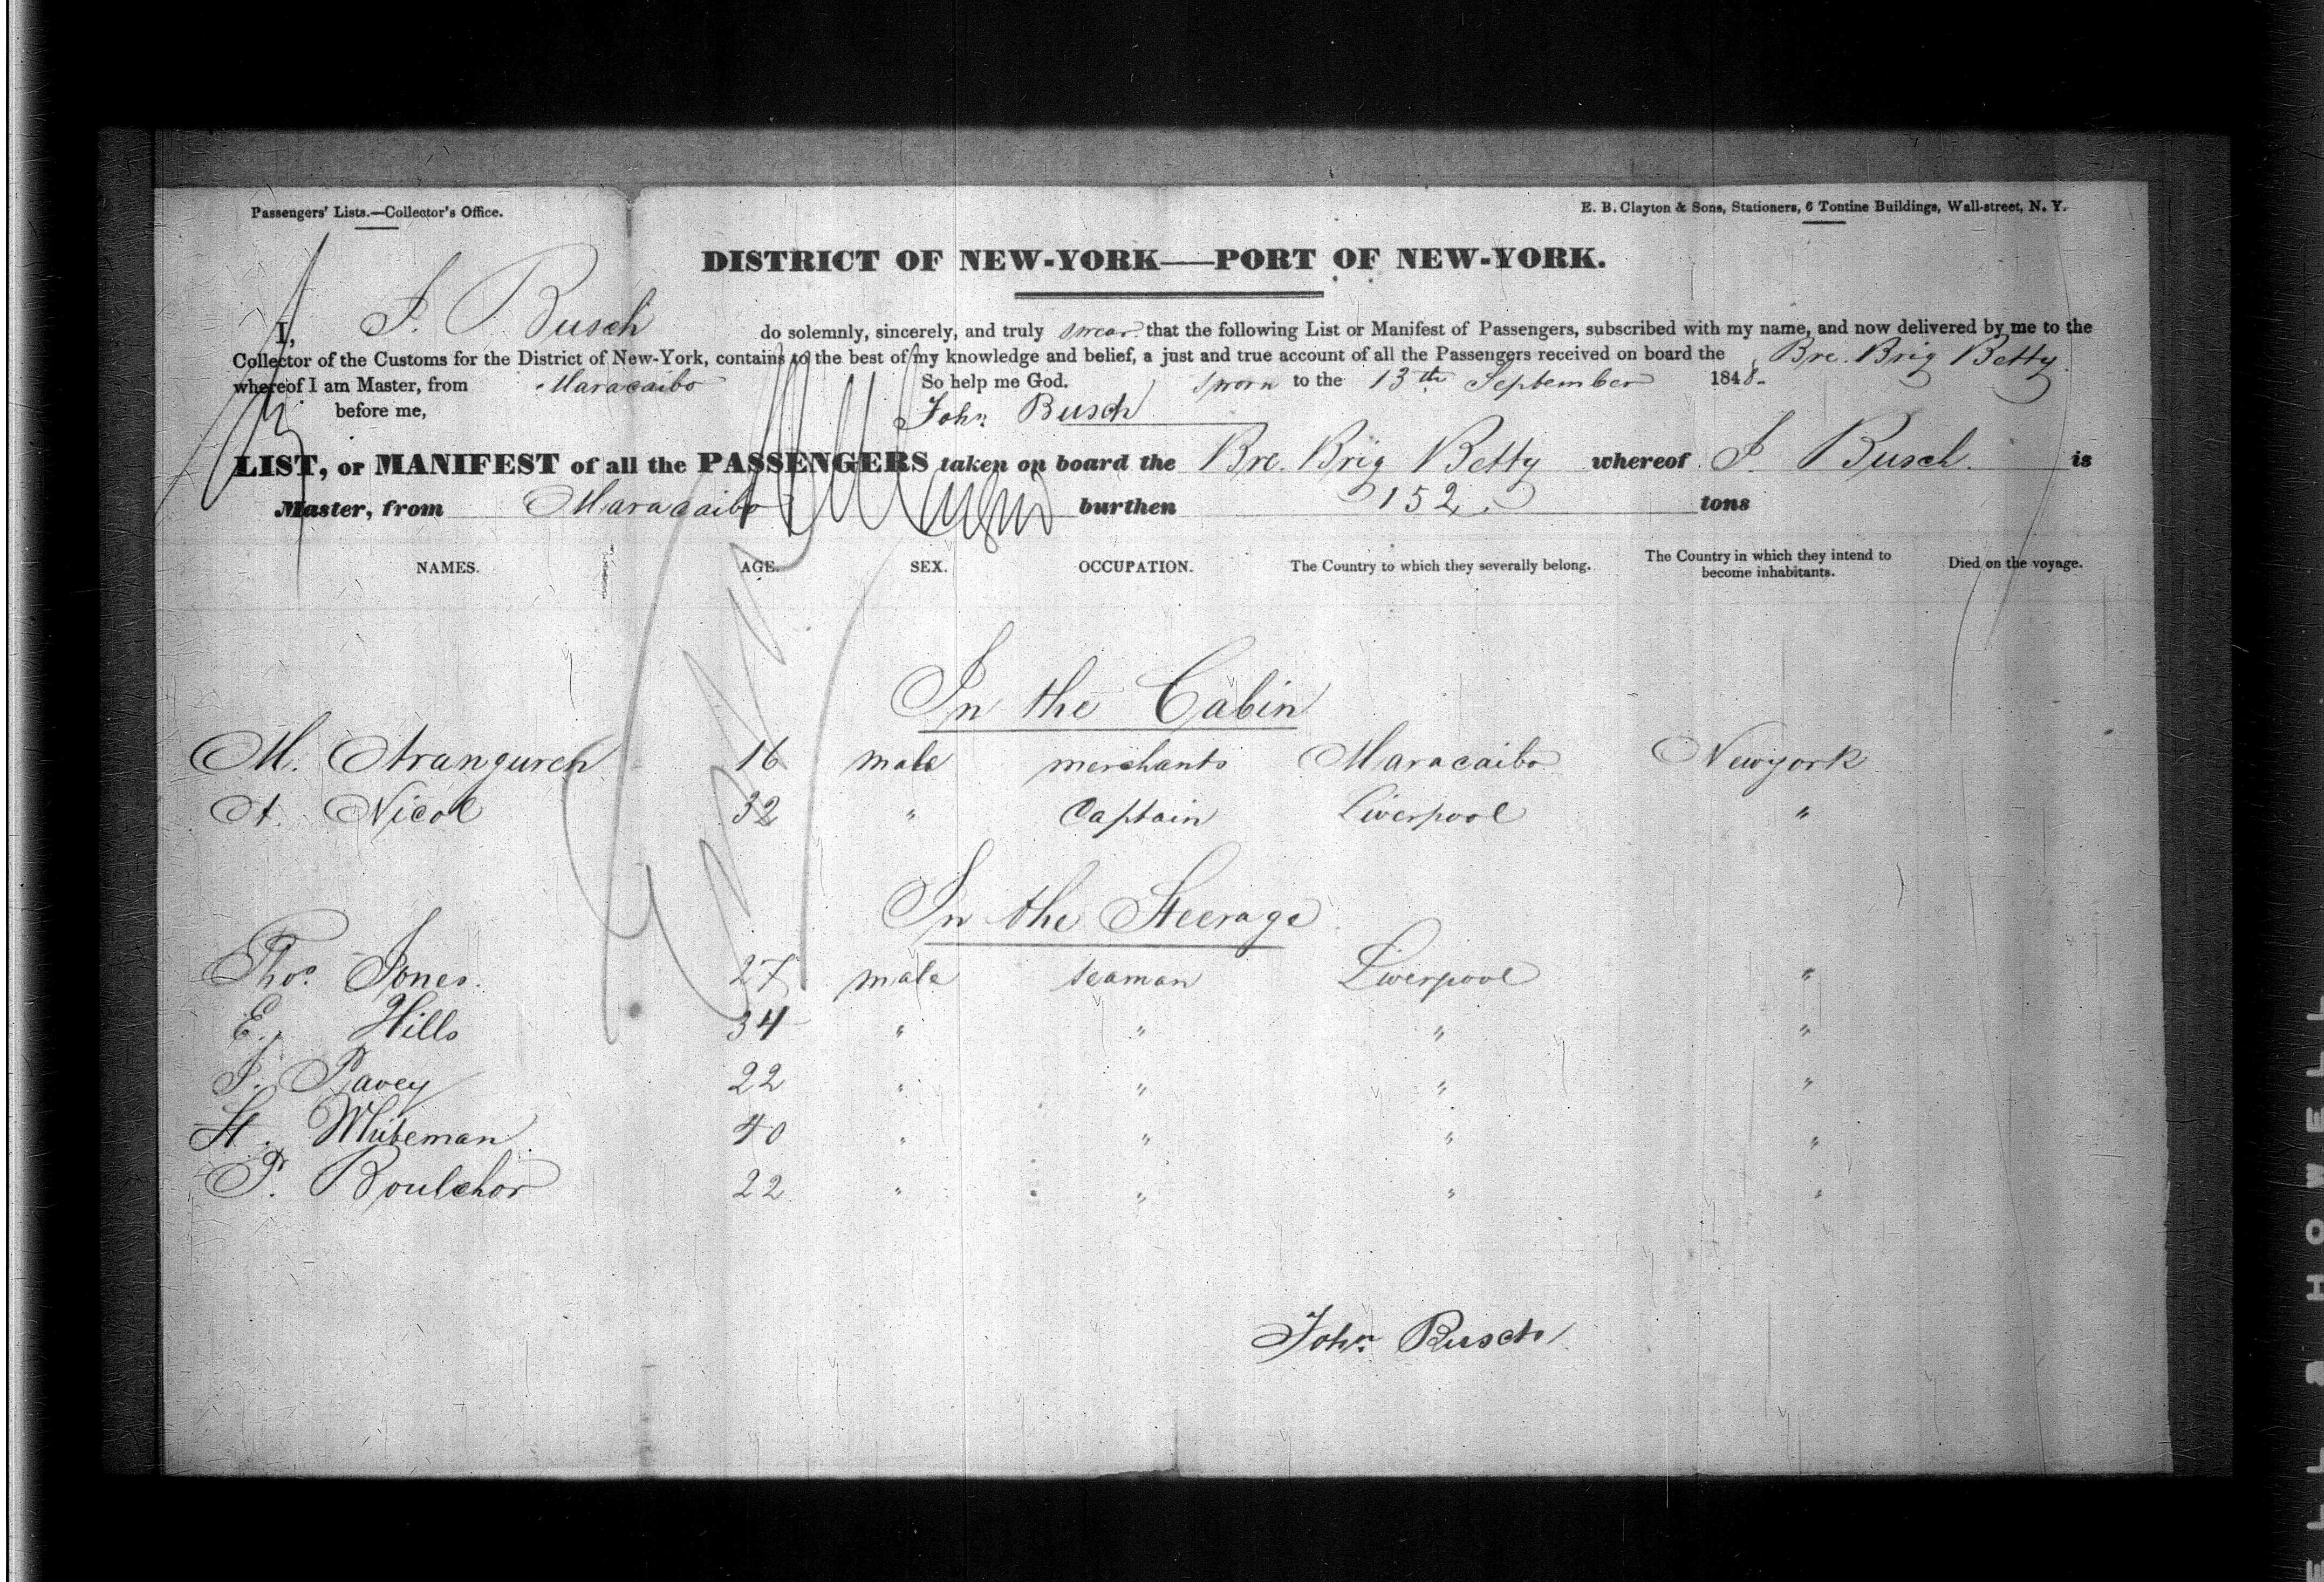 Passengers' Lists.—Collector's Office.
E. B. Clayton & Sons, Stationers, 6 Tontine Buildings, Wall-street, N. Y.
DISTRICT OF NEW-YORK—PORT OF NEW-YORK.
I, J. Busch do solemnly, sincerely, and truly swear that the following List or Manifest of Passengers, subscribed with my name, and now delivered by me to the
Collector of the Customs for the District of New-York, contains to the best of my knowledge and belief, a just and true account of all the Passengers received on board the Bre. Brig Betty
whereof I am Master, from Maracaibo So help me God. Sworn to the 13th September 1848.
before me, John Busch
LIST, or MANIFEST of all the PASSENGERS taken on board the Bre. Brig Betty whereof J. Busch is
Master, from Maracaibo burthen 152 tons
NAMES. AGE. SEX. OCCUPATION. The Country to which they severally belong. The Country in which they intend to become inhabitants. Died on the voyage.
In the Cabin
M. Aranguren 16 male merchants Maracaibo Newyork
A. Nicol 32 " Captain Liverpool "
In the Steerage
Thos. Jones. 27 male seaman Liverpool "
E. Hills 34 " " " "
J. Pavey 22 " " " "
H. Whiteman 40 " " " "
P. Boulchor 22 " " " "
John Busch
BELL & HOWELL